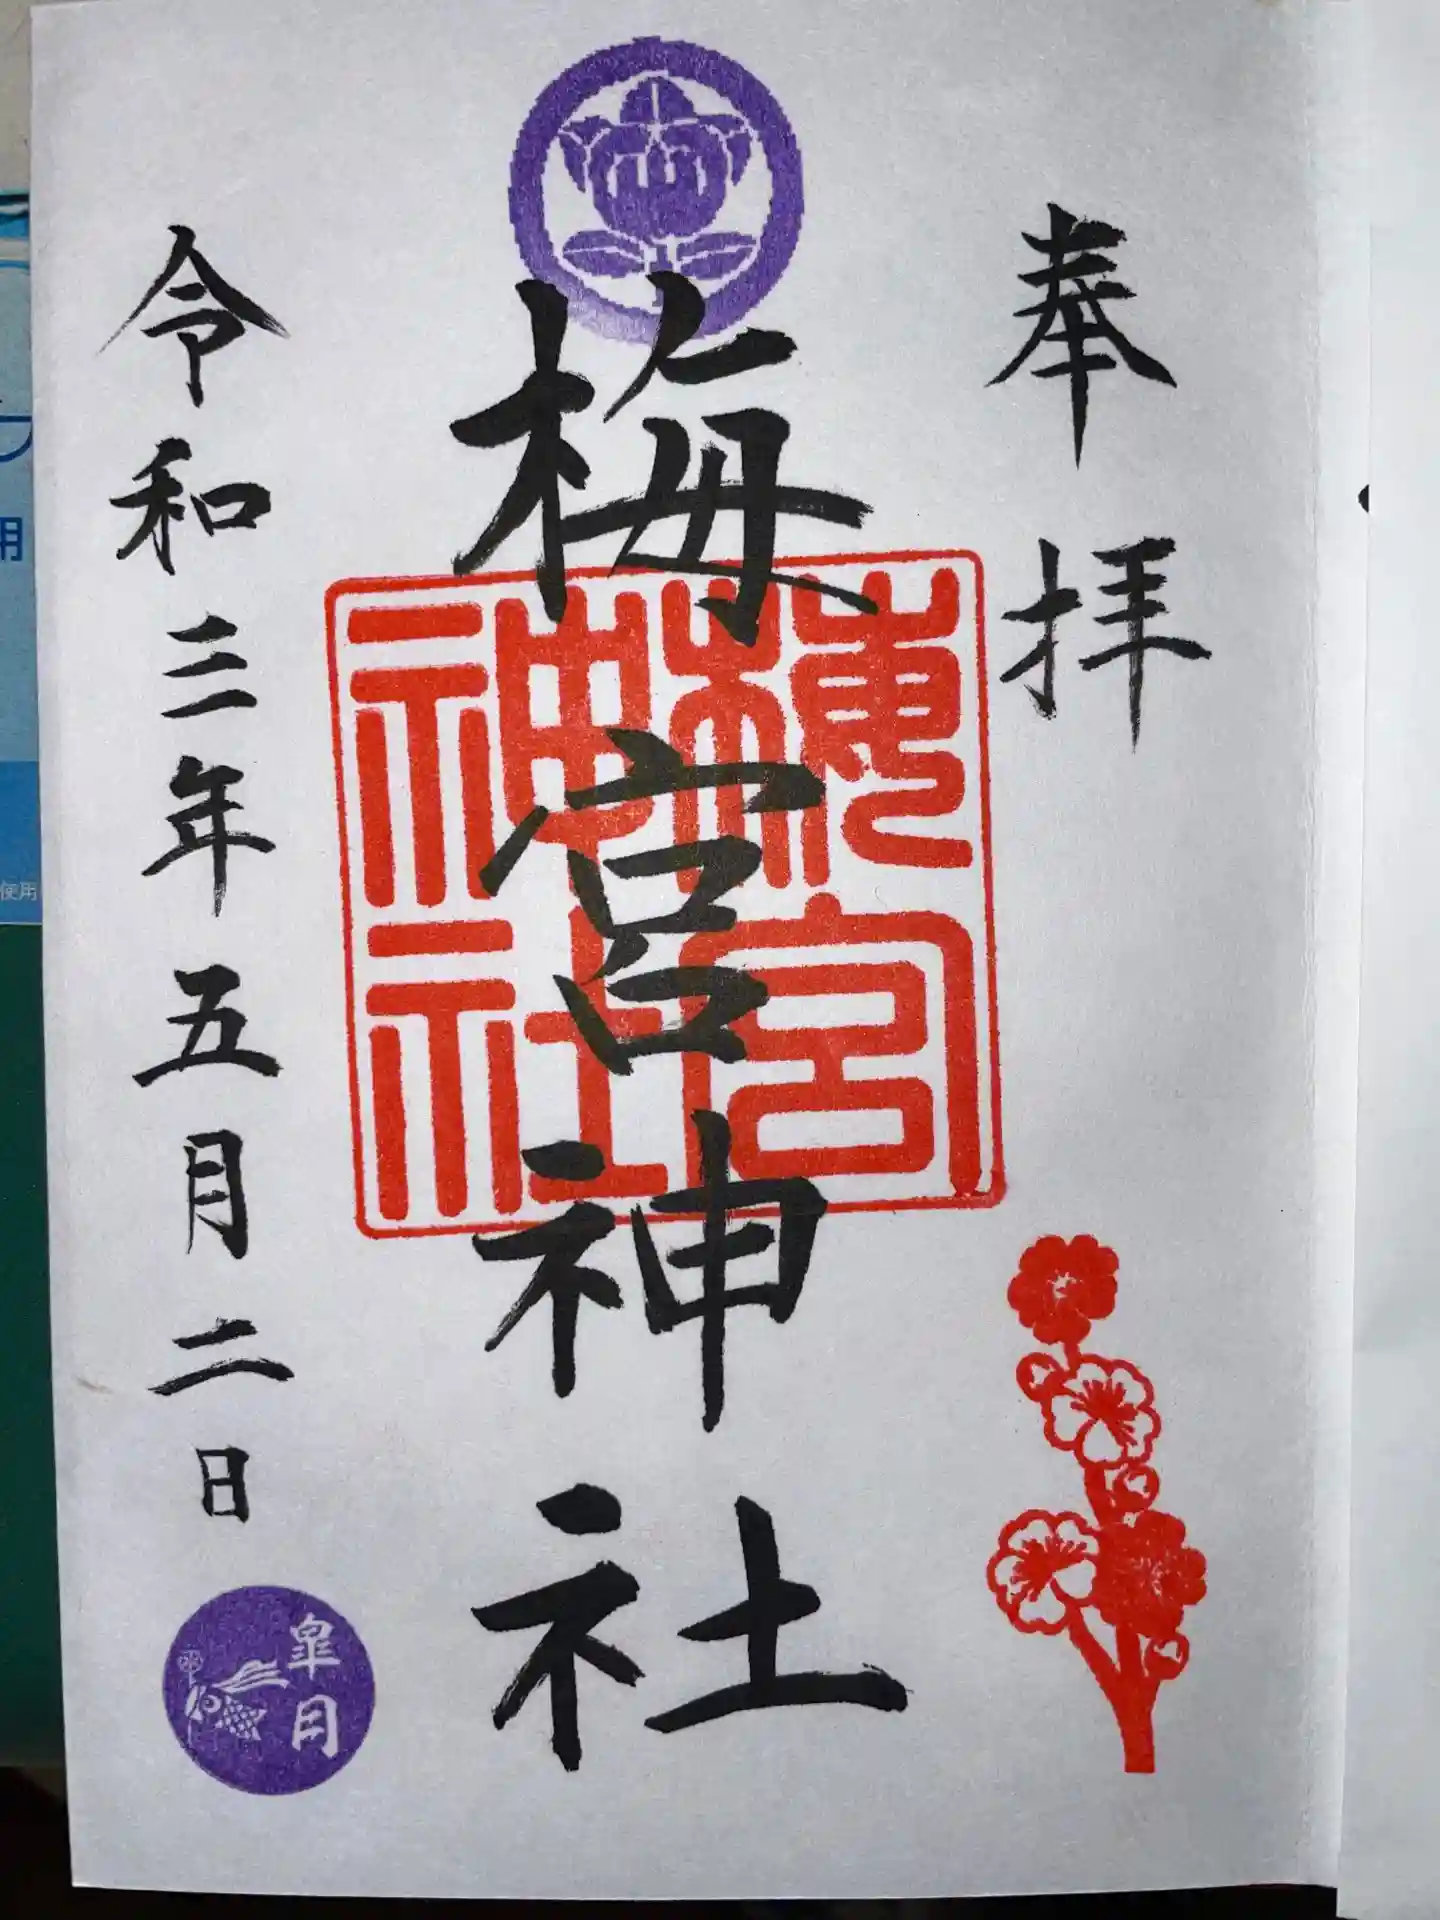 奉拝
梅宮神社
梅宮
神社
令和三年五月二日
皐月
用
使用